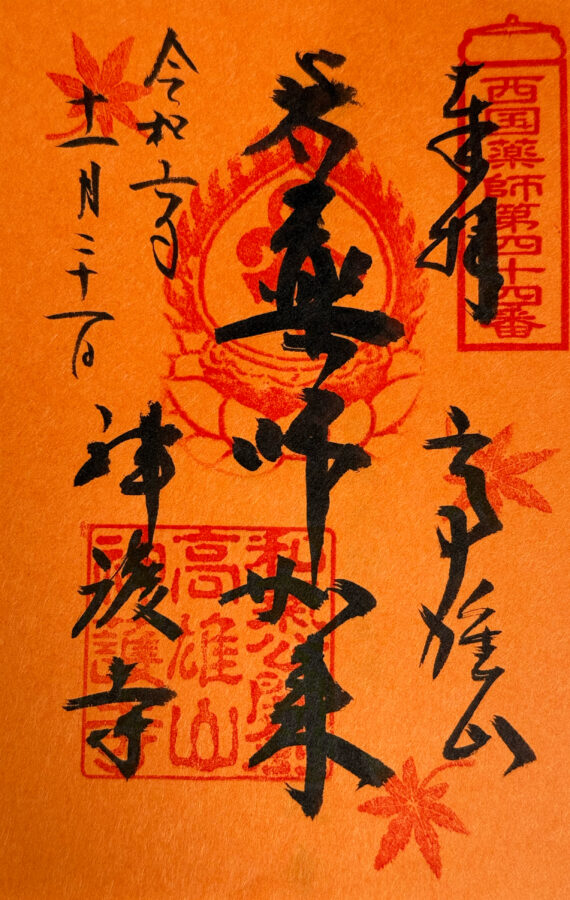 西国薬師第四十四番
奉拝
高雄山
薬師如来
令和
十一月二十一日
神護寺
和氣公開基
高雄山
神護寺